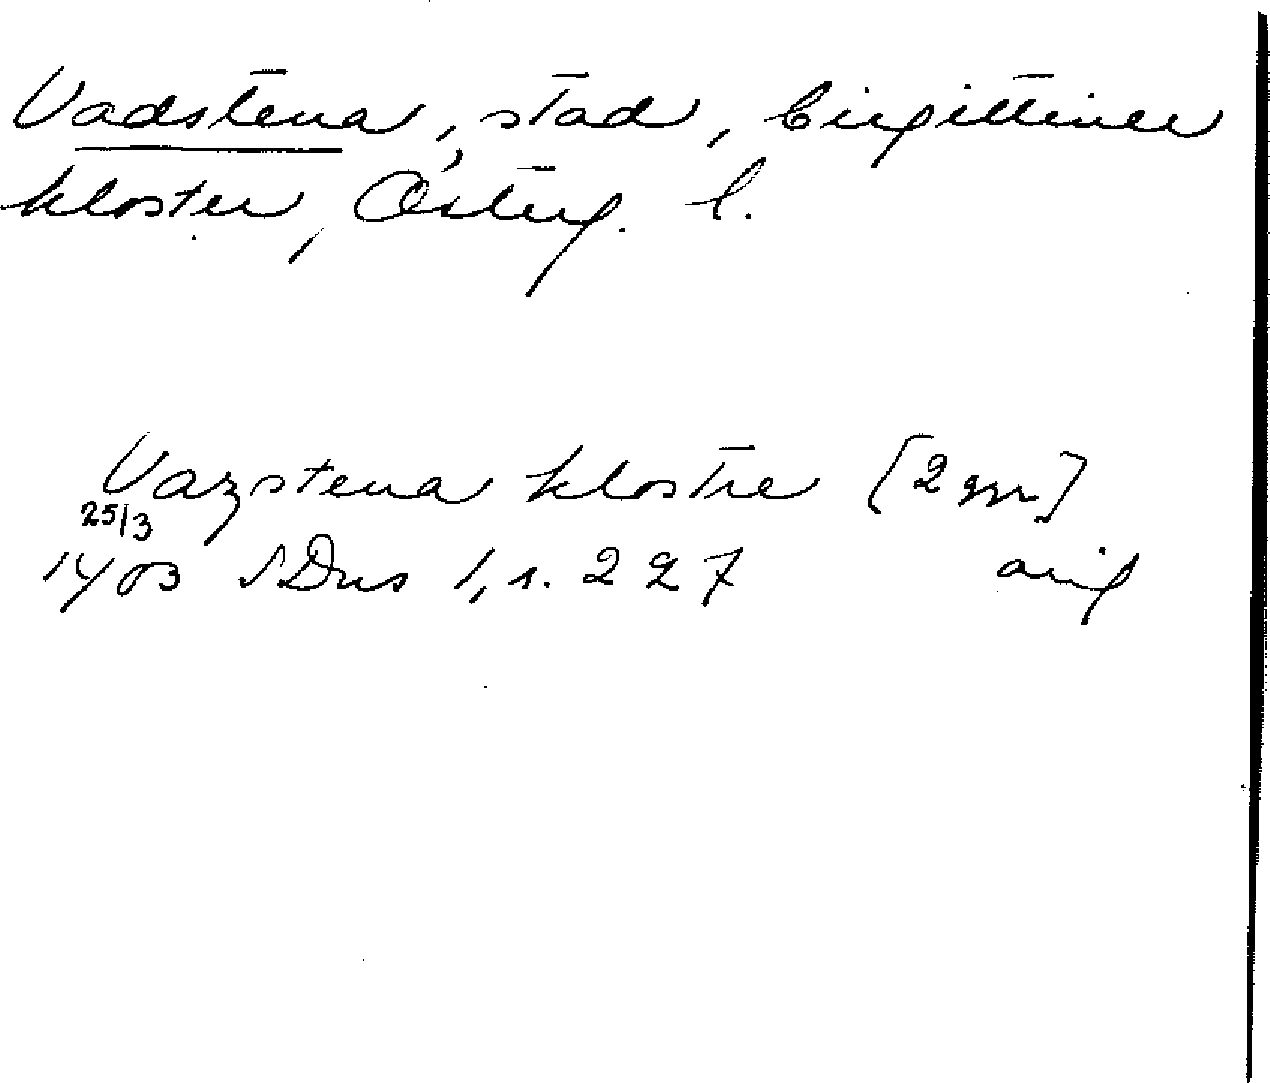 Vadstena, stad, birgittiner
kloster, Österg. l.
Vazstena klostre [2 ggr]
25/3
1403 SDns 1, s. 227 orig